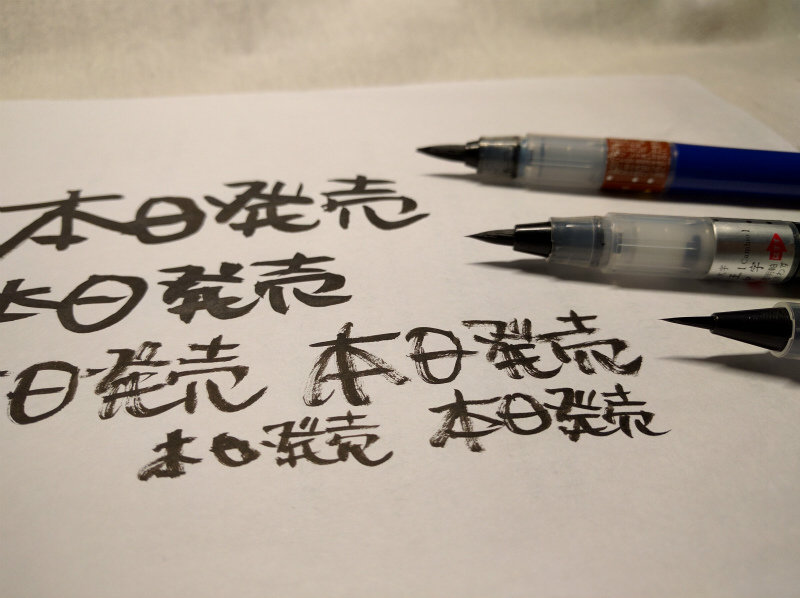 本日発売
本日発売
日発売 本日発売
本日発売 本日発売